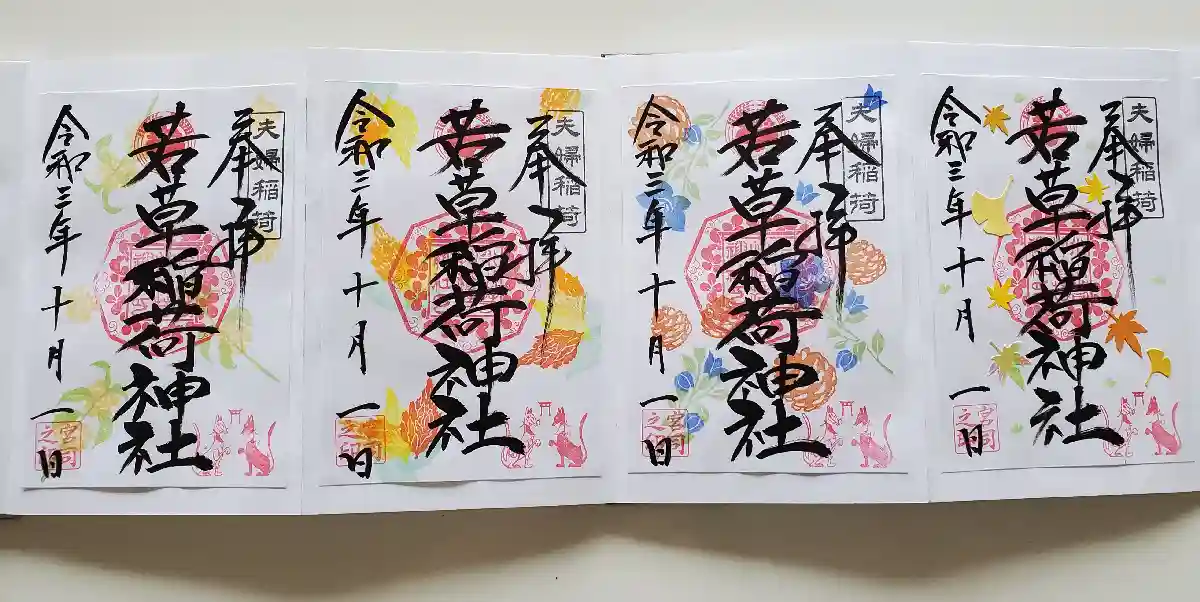 夫婦稲荷
奉拝
若草稲荷神社
令和三年十月一日
宮司之印
夫婦稲荷
奉拝
若草稲荷神社
令和二年十月一日
宮司之印
夫婦稲荷
奉拝
若草稲荷神社
令和二年十月一日
宮司之印
夫婦稲荷
奉拝
若草稲荷神社
令和三年十月一日
宮司之印